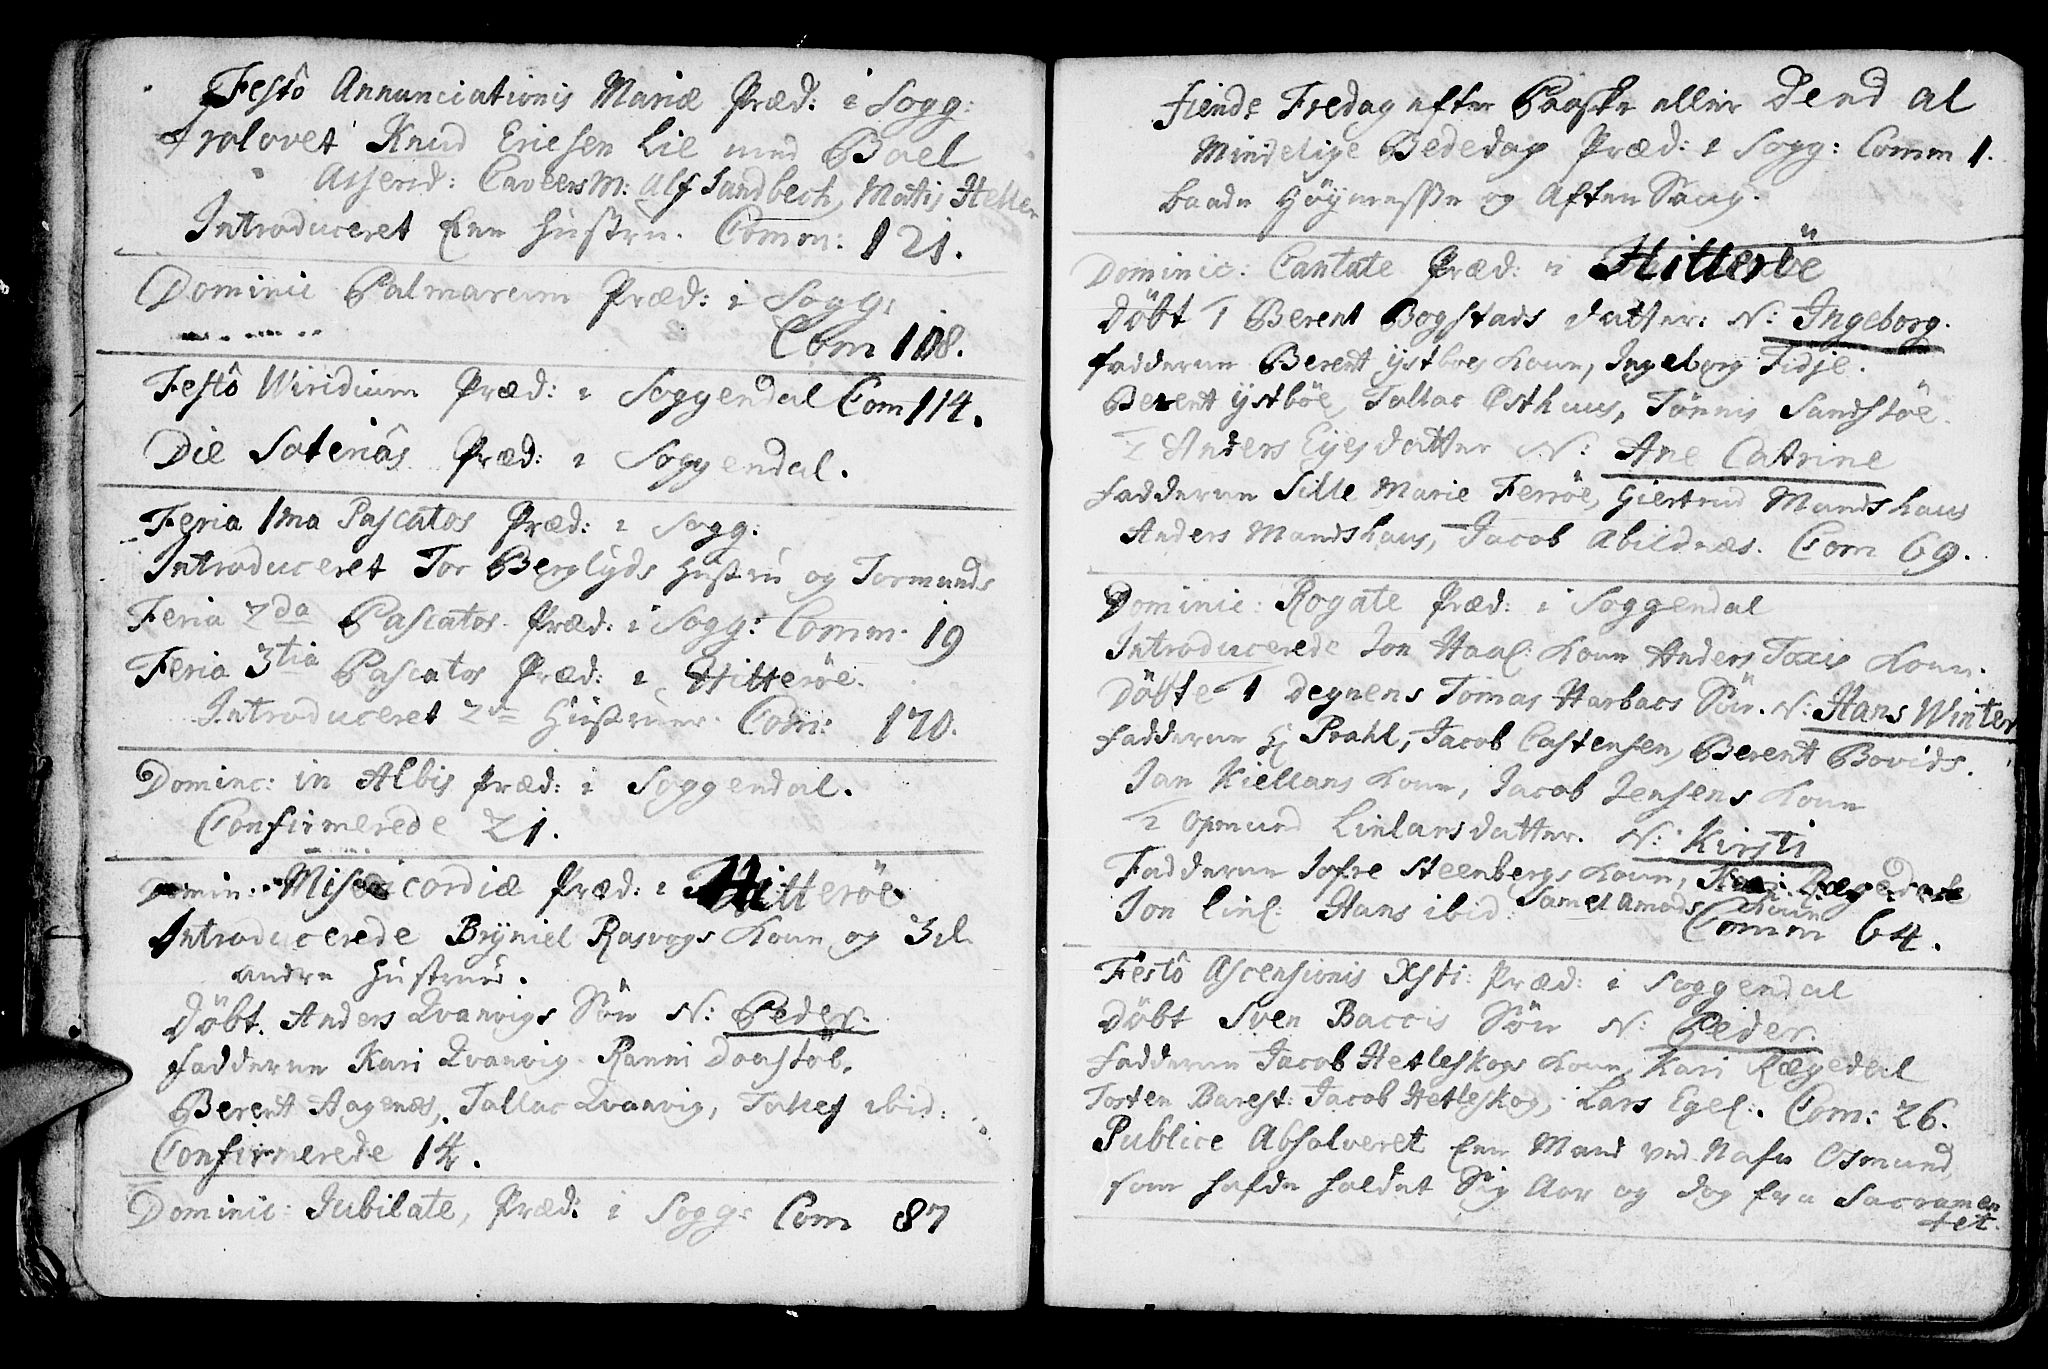 Festô Annunciationis Mariæ Præd: i Sogg:
Trolovet Knud Ericsen Lie med Boel
Asserid: Caveers M: Alf Sandbech, Matis Helle
Introduceret Een Hustru. Comm: 121.
Dominic Palmarum Præd: i Sogg:
Com 108.
Festô Viridium Præd: i Soggendal Com 114.
Die Soteriâs Præd: i Soggendal.
Feria 1ma Pascatos Præd: i Sogg:
Introduceret Tor Berglyds Hustru og Tormunds
Feria 2da Pascatos. Præd: i Sogg: Comm. 19
Feria 3tia Pascatos Præd: i Hitterøe.
Introduceret 2de Hustruer. Com: 170.
Dominc: in Albis Præd: i Soggendal.
Confirmerede 21.
Domin: Misericordiæ Præd: i Hitterøe
Introducerede Bryniel Rasvogs Kone og 3de
andre Hustruer.
Døbt. Anders Qvanvigs Søn N: Peder.
Fadderne Kari Qvanvig. Ranni Donstøb.
Berent Aagenæs, Tallac Qvanvig, Tollef ibid:
Confirmerede 14.
Dominic: Jubilate, Præd: i Sogg: Com 87
fierde Fredag efter Paaske eller Dend al
Mindelige Bededag Præd: i Sogg: Comm 1.
baade Høymesse og Aften Sang.
Dominic: Cantate Præd: i Hitterøe
Døbt 1 Berent Bogstads datter: N: Ingeborg.
fadderne Berent ystbøes Kone, Ingeborg Fidje.
Berent ystbøe, Tallac Østhuus, Tønnis Sandstøe.
2 Anders Eyes datter N: Ane Catrine
Fadderne Sille Marie Ferrøe, Giertrud Mandshaus
Anders Mandshaus, Jacob Abildnæs. Com 69.
Dominic: Rogate Præd: i Soggendal
Introducerede Jon Haal: Kone Anders Toxis Kone.
Døbte 1 Degnens Tomas Harboes Søn. N: Hans Winter
Fadderne H Prahl, Jacob Castensen, Berent Bovids.
Jan Kiellans Kone, Jacob Jensens Kone
2 Osmund Linlans datter. N: Kirsti
Fadderne Jofre Steenbergs Kone, Kari Rægedal
Jon Linl: Hans ibid: Samel Amods Kone
Comm 64.
Festô Ascensionis Xsti: Præd: i Soggendal
Døbt Sven Baccis Søn N: Peder.
Fadderne Jacob Hetleskogs Kone, Kari Rægedal
Torsten Barest: Jacob Hetleskog, Lars Egel:. Com: 26.
Publice Absolveret Een Mand ved Nafn Osmund,
som hafde holdet Sig Aar og dag fra Sacramen
tet.